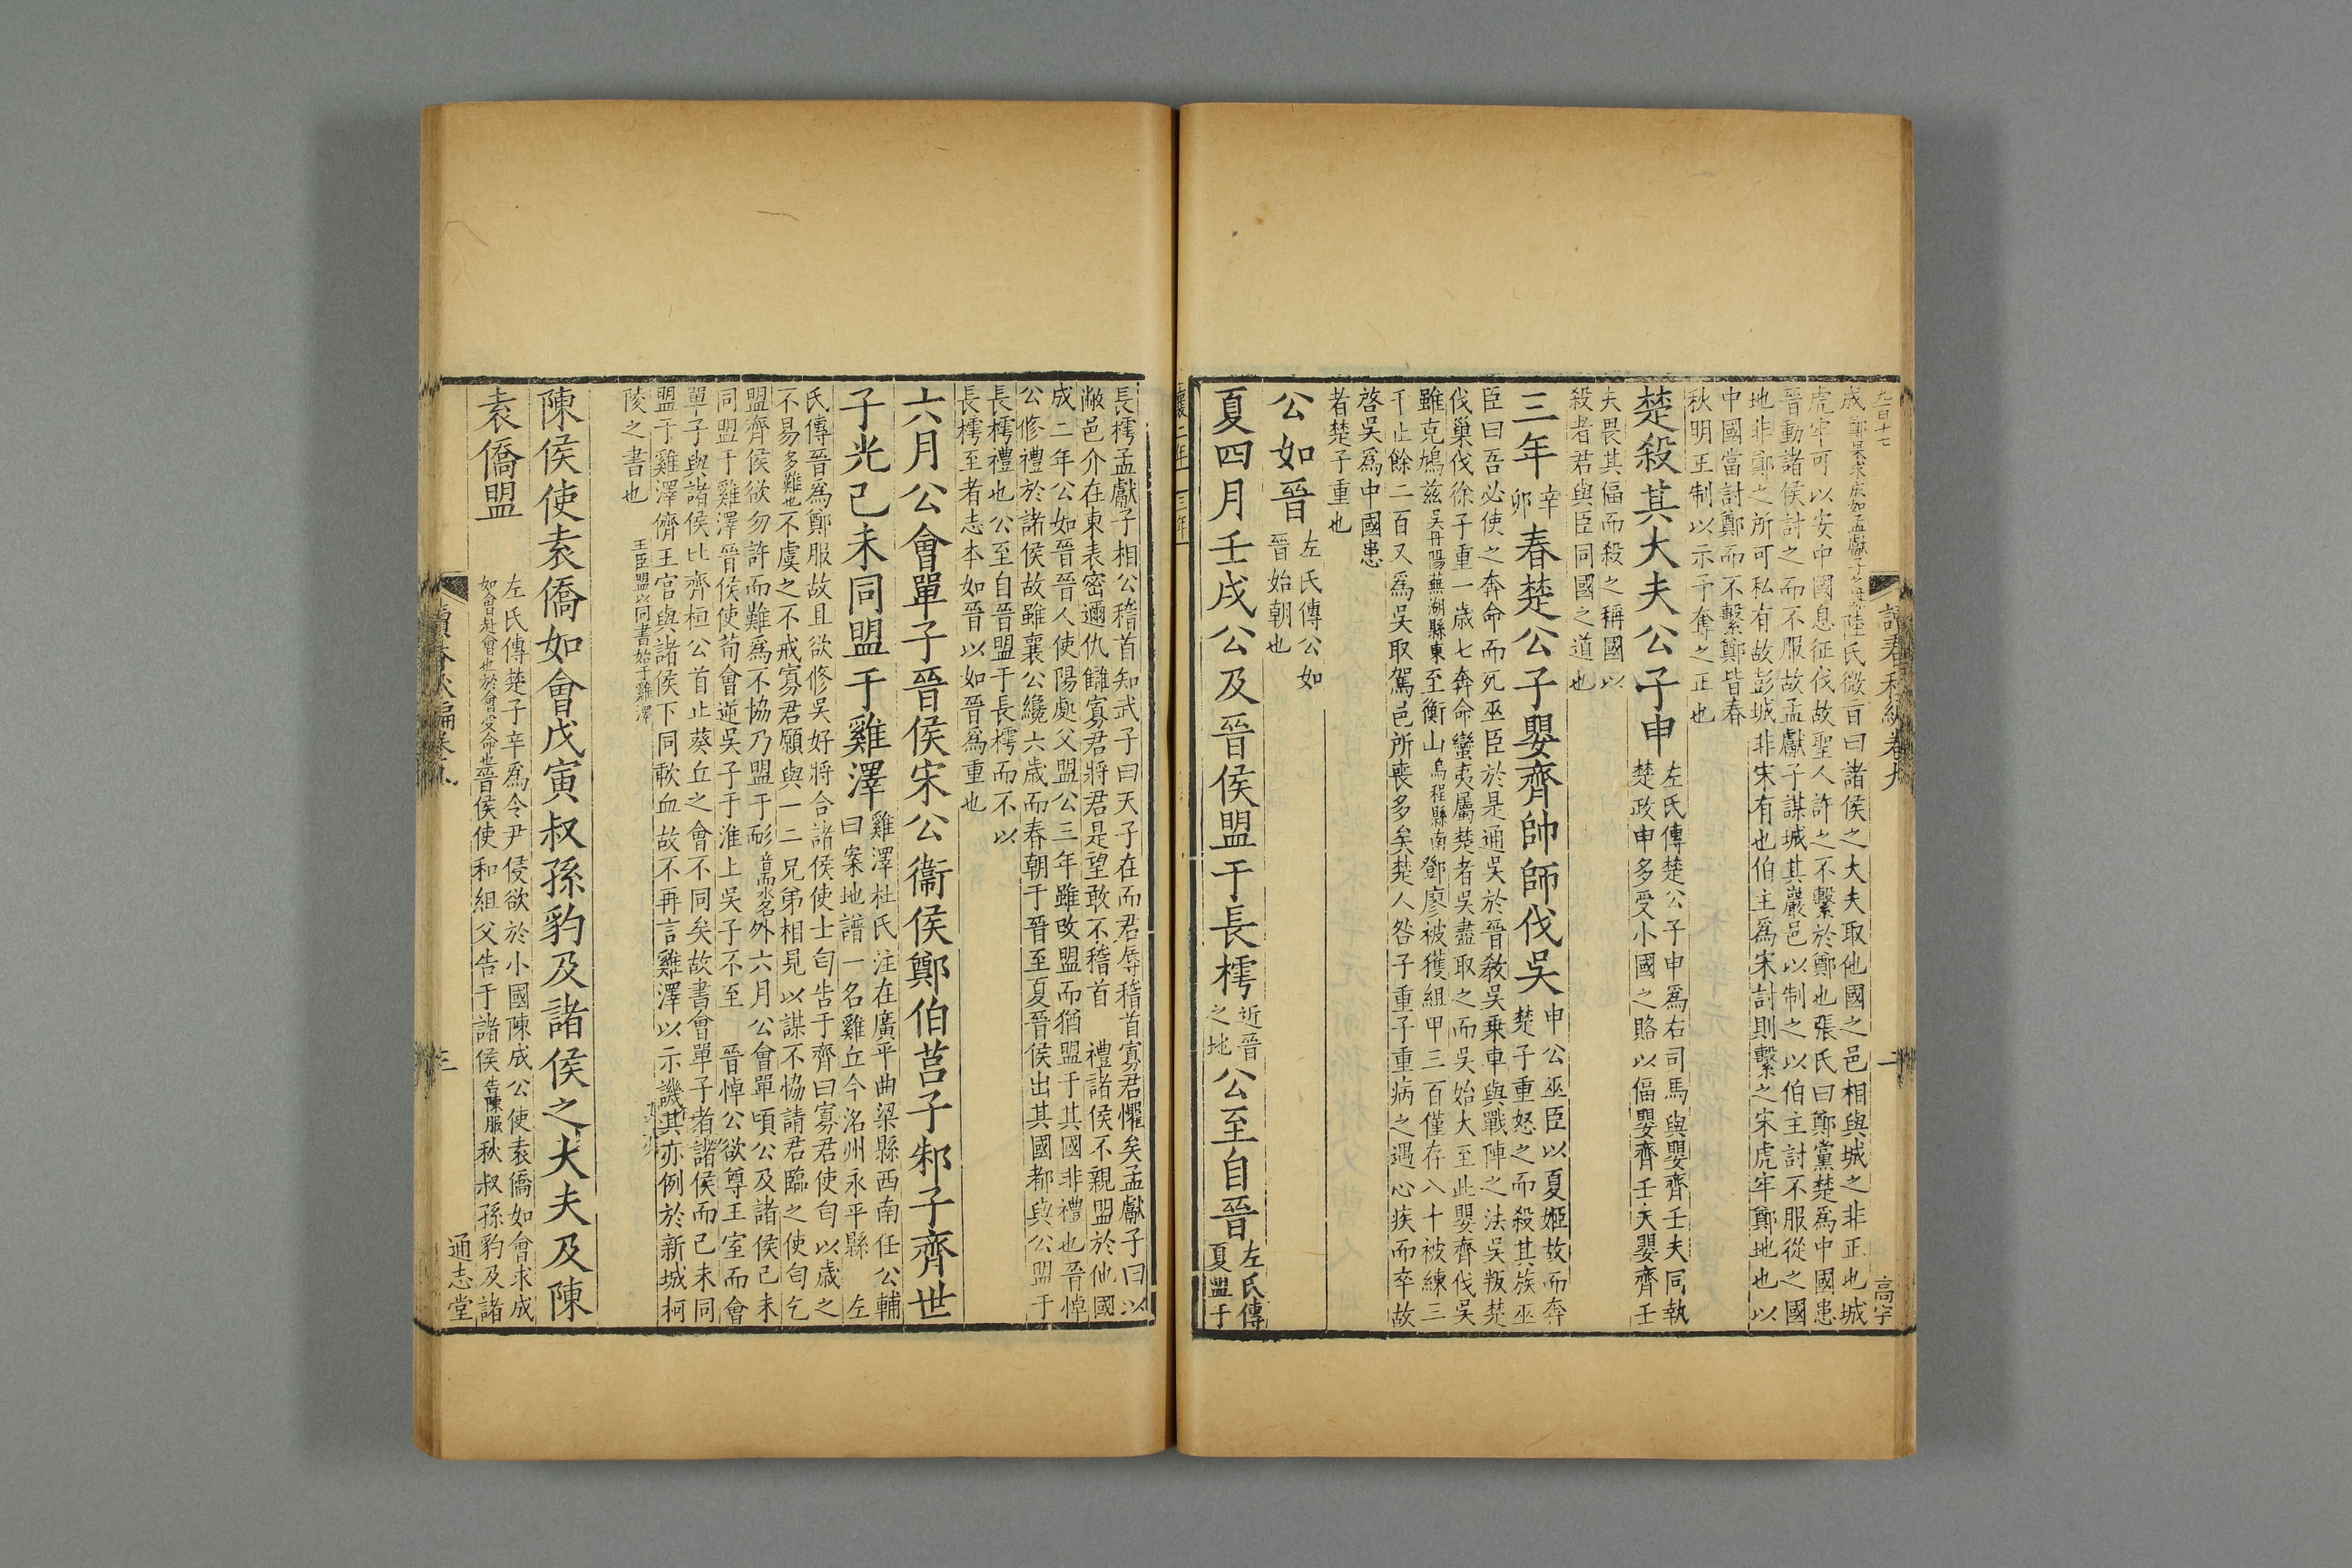 九百十七
讀春秋編卷九
二
高宇
成鄭果求成如孟獻子之謀陸氏微旨曰諸侯之大夫取他國之邑相與城之非正也城
虎牢可以安中國息征伐故聖人許之不繫於鄭也張氏曰鄭黨楚爲中國患
晉動諸侯討之而不服故孟獻子謀城其嚴邑以制之以伯主討不服從之國
地非鄭之所可私有故彭城非宋有也伯主爲宋討則繫之宋虎牢鄭地也以
中國當討鄭而不繫鄭皆春
秋明王制以示予奪之正也
楚殺其大夫公子申左氏傳楚公子申爲右司馬與嬰齊壬夫同執
楚政申多受小國之賂以偪嬰齊壬夫嬰齊壬
夫畏其偪而殺之稱國以
殺者君與臣同國之道也
三年辛卯春楚公子嬰齊帥師伐吳申公巫臣以夏姬故而奔
楚子重怒之而殺其族巫
臣曰吾必使之奔命而死巫臣於是通吳於晉敎吳乗車與戰陣之法吳叛楚
伐巢伐徐子重一歲七奔命蠻夷屬楚者吳盡取之而吳始大至此嬰齊伐吳
雖克鳩茲吳丹陽蕪湖縣東至衡山烏程縣南鄧廖被獲組甲三百僅存八十被練三
千止餘二百又爲吳取駕邑所喪多矣楚人咎子重子重病之遇心疾而卒故
啓吳爲中國患
者楚子重也
公如晉左氏傳公如
晉始朝也
夏四月壬戌公及晉侯盟于長樗近晉之地公至自晉左氏傳
夏盟于
襄二年 三年
長樗孟獻子相公稽首知武子曰天子在而君辱稽首寡君懼矣孟獻子曰以
敝邑介在東表密邇仇讎寡君將君是望敢不稽首 禮諸侯不親盟於他國
成二年公如晉晉人使陽處父盟公三年雖改盟而猶盟于其國非禮也晉悼
公修禮於諸侯故雖襄公纔六歲而春朝于晉至夏晉侯出其國都與公盟于
長樗禮也公至自晉盟于長樗而不以
長樗至者志本如晉以如晉爲重也
六月公會單子晉侯宋公衞侯鄭伯莒子邾子齊世
子光己未同盟于雞澤雞澤杜氏注在廣平曲梁縣西南任公輔
曰案地譜一名雞丘今洺州永平縣 左
氏傳晉爲鄭服故且欲修吳好將合諸侯使士匄告于齊曰寡君使匄以歲之
不易多難也不虞之不戒寡君願與一二兄弟相見以謀不恊請君臨之使匄乞
盟齊侯欲勿許而難爲不協乃盟于耏音而水名外六月公會單頃公及諸侯己未
同盟于雞澤晉侯使荀會逆吳子于淮上吳子不至 晉悼公欲尊王室而會
單子與諸侯比齊桓公首止葵丘之會不同矣故書會單子者諸侯而己未同
盟于雞澤儕王官與諸侯下同歃血故不再言雞澤以示譏其亦例於新城柯
陵之書也王臣盟以同書始于雞澤
陳侯使袁僑如會戊寅叔孫豹及諸侯之大夫及陳
袁僑盟左氏傳楚子辛爲令尹侵欲於小國陳成公使袁僑如會求成
如會赴會也於會受命也晉侯使和組父告于諸侯告陳服秋叔孫豹及諸
讀春秋編卷九
三
通志堂